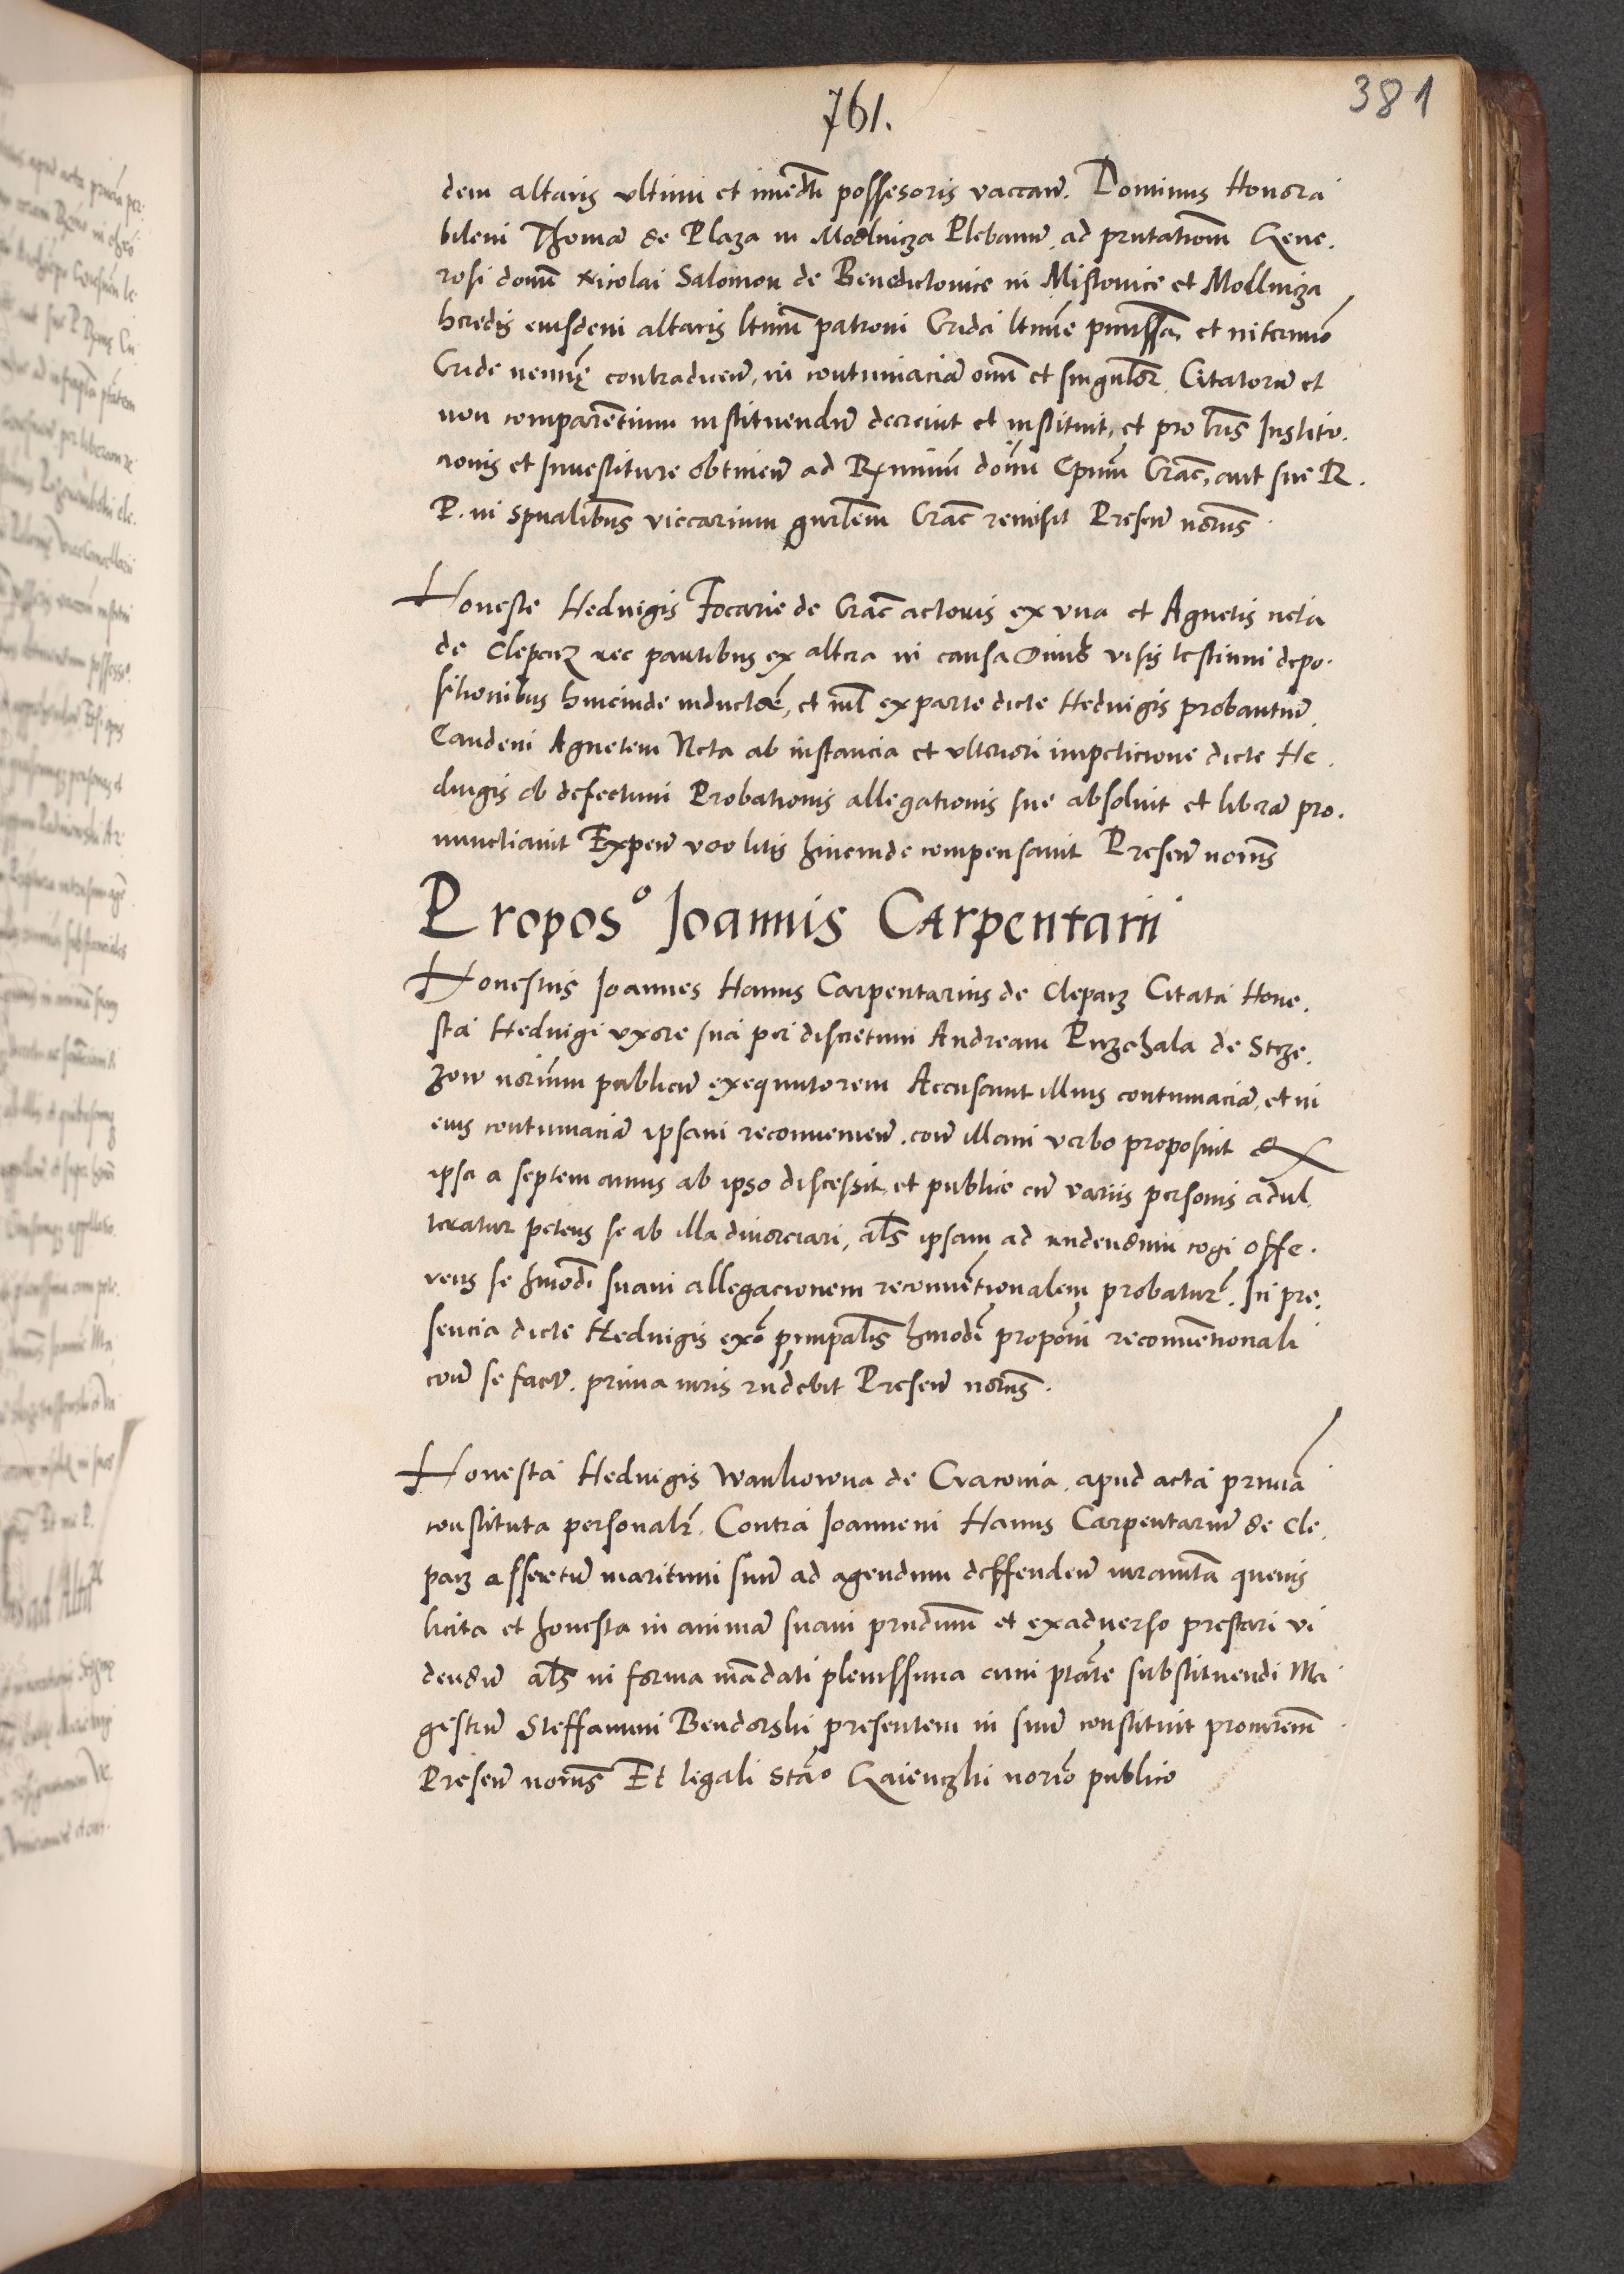 381
761.
dem altaris ultimi et imedti possesoris vaccan̄. Dominus Honora
bilem Thomā de Plaza in Modlnicza Plebanū, ad pn̄tationē Gene.
rosi domī Nicolai Salomon de Benedictowice in Mistowice et Modlnicza
heredis eiusdem altaris ltimī patroni Crida ltime pmissa, et in termīo
Cride nemīe contradicen̄, in contumaciā oīm et singulor̄ Citatorū et
non comparētium instituendū decreuit et instituit, et pro lr̄is Institu.
cionis et Inuestiture obtinen̄ ad Rx̄mum domī Epm̄ Crac̄, aut sue R.
P. in spualibus viccarium gnrlem Crac̄ remisit Presen̄ norijs
Honeste Heduigis Focarie de Crac̄ actoris ex vna et Agnetis neta
de Cleparz ree partibus ex altera in causa Oiuris visis testium depo.
sitionibus hincinde inductar̄, et nīl ex parte dicte Heduigis probantiū,
Eandem Agnetem Neta ab instancia et vlteriori impeticione dicte He.
duigis ob defectum Probationis allegationis sue absoluit et liberā pro.
nunctiauit Expen̄ vero litis hincinde compensauit Presen̄ norijs
Propos° Joannis Carpentarii
Honestus Joannes Hanus Carpentarius de Cleparz Citata Hone.
sta Heduigi vxore sua per discretum Andream Przchala de Strze.
zow norium publicū exequutorem Accusauit illius contumaciā, et in
eius contumaciā ipsam reconuenien̄. con̄ illam verbo proposuit &
ipsa a septem annis ab ipso discessit, et publice cū variis personis adul
teratur petens se ab illa diuorciari, als ipsam ad rn̄dendum cogi offe.
rens se hmodī suam allegacionem reconuētionalem probaturū. In pre.
sencia dicte Heduigis exō principalis hmodī propoīi reconuētionali
con̄ se fact̄. prima iuris rn̄debit Presen̄ norijs.
Honesta Heduigis Wankowna de Cracouia, apud acta prn̄ia
constituta personalr̄. Contra Joannem Hanus Carpentariū de Cle.
parz assertū maritum suū ad agendum deffenden̄ iuramta queuis
licita et honesta in animā suam prn̄dum et exaduerso prestari vi
dendū als in forma mādati plenissima cum ptāte substituendi Ma
gistrū Steffanum Bendorski presentem in suū constituit procrem
Presen̄ norijs Et legali Stā° Gaienczki norīo publico